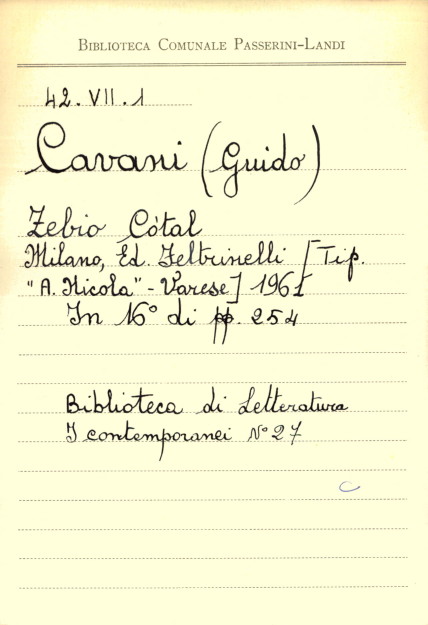 BIBLIOTECA COMUNALE PASSERINI-LANDI
42. VII. 1
Cavani (Guido)
Zebio Còtal
Milano, Ed. Feltrinelli [Tip.
"A. Nicola" - Varese] 1961
In 16° di pp. 254
Biblioteca di Letteratura
I contemporanei N° 27
C